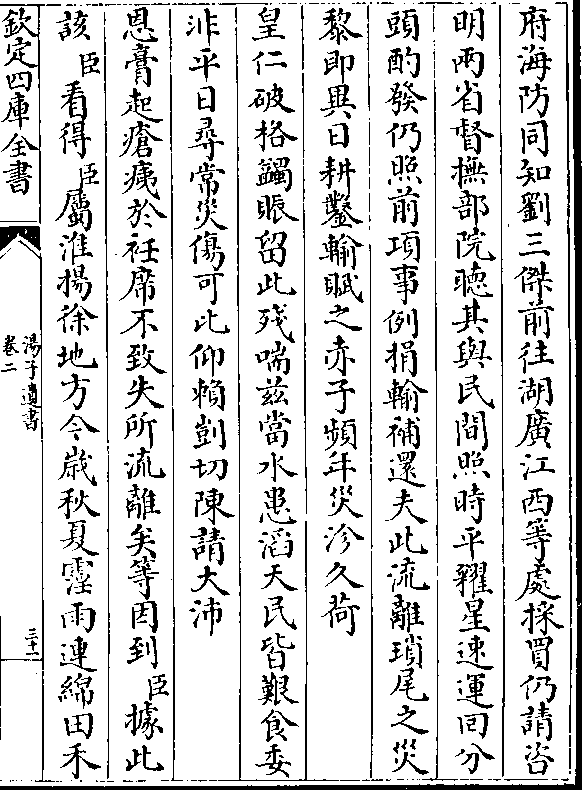 府海防同知劉三傑前往湖廣江西等處採買仍請咨
明兩省督撫部院聽其與民間照時平糴星速運回分
頭酌發仍照前項事例捐輸補還夫此流離瑣尾之災
黎即異日耕鑿輸賦之赤子頻年災沴久荷
皇仁破格蠲賑留此殘喘兹當水患滔天民皆艱食委
非平日尋常災傷可比仰賴剴切陳請大沛
恩膏起瘡痍於衽席不致失所流離矣等因到臣據此
該臣看得臣屬淮揚徐地方今歲秋夏霪雨連綿田禾
欽定四庫全書
湯子遺書
卷二
三十一